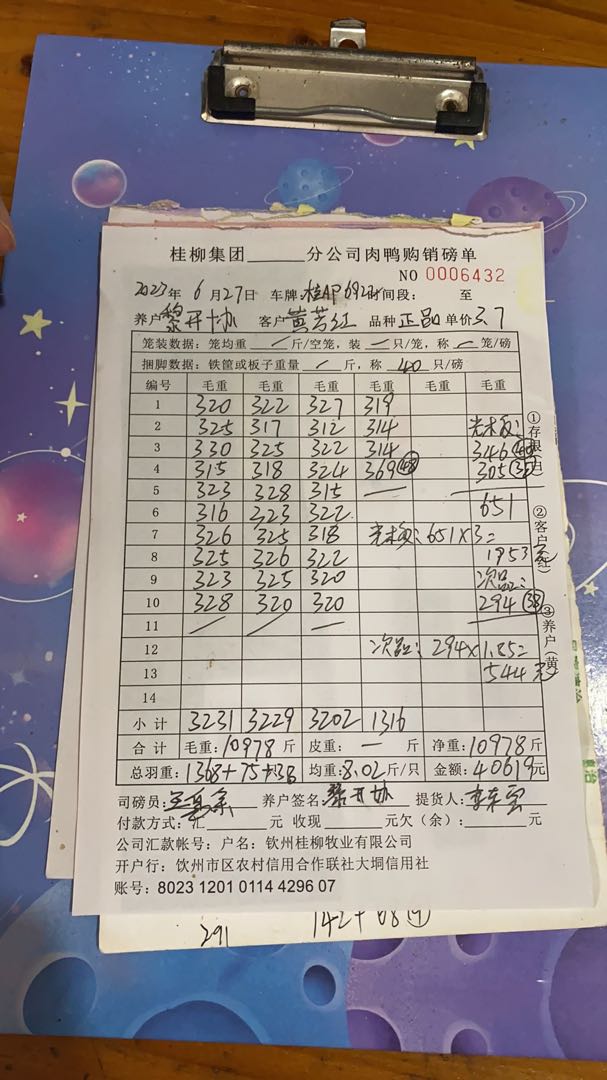 桂柳集团______分公司肉鸭购销磅单
NO 0006432
2023年 6月27日 车牌:桂AP 692 时间段: 至
养户 黎开协 客户 黄芳红 品种 正品 单价 3.7
笼装数据:笼均重 / 斤/空笼,装 / 只/笼,称 / 笼/磅
捆脚数据:铁筐或板子重量 / 斤,称 40 只/磅
编号 毛重 毛重 毛重 毛重 毛重 毛重
1 320 322 327 319
2 325 317 312 314 光木板:
3 330 325 322 314 346 40
4 315 318 324 369 48 305 35
5 323 328 315 —
6 316 323 322 651
7 326 325 318 光木板:651×3=
8 325 326 322 1953元
9 323 325 320 次品:
10 328 320 320 294 38
11 / / —
12 次品:294×1.85=
13 544元
14
小计 3231 3229 3202 1316
合计 毛重:10978斤 皮重:—斤 净重:10978斤
总羽重:1368+75+38 均重:8.02斤/只 金额:40619元
司磅员: 养户签名:黎开协 提货人:
付款方式:汇______元 收现______元欠(余):______元
公司汇款帐号:户名:钦州桂柳牧业有限公司
开户行:钦州市区农村信用合作联社大垌信用社
账号:8023 1201 0114 4296 07
①存根(白)
②客户(红)
③养户(黄)
291 142+68